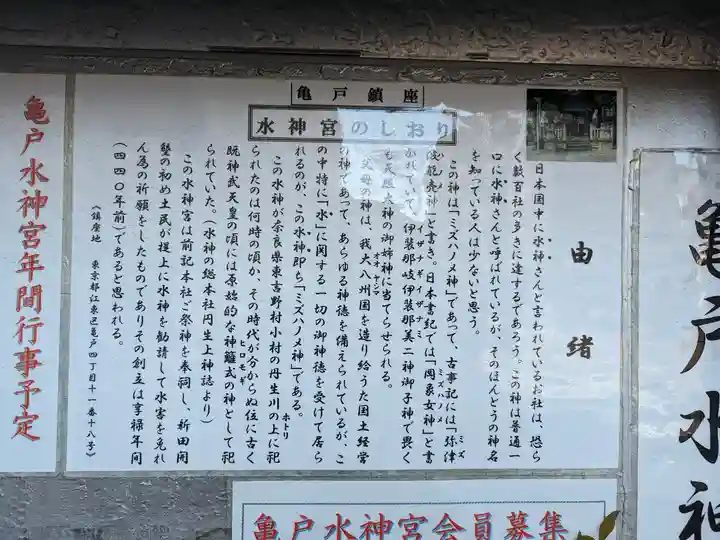 亀戸鎮座
水神宮のしおり
由緒
日本国中に水神さんと言われているお社は、恐ら
く数百社の多きに達するであろう。この神は普通一
口に水神さんと呼ばれているが、そのほんとうの神名
を知っている人は少ないと思う。
この神は「ミズハノメ神」であって、古事記には「弥津
波能売神」と書き。日本書紀では「罔象女神」と書
かれていて、伊装那岐伊装那美二神御子神で畏く
も天照大神の御姉神に当てらせられる。
父母の神は、我大八州国を造り給うた国土経営
の神であって、あらゆる神徳を備えられているが、こ
の中特に「水」に関する一切の御神徳を受けて居ら
れるのが、この水神即ち「ミズハノメ神」である。
この水神が奈良県東吉野村小村の丹生川の上に祀
られたのは何時の頃か、その時代が分からぬ位に古く
既神武天皇の頃には原始的な神籬式の神として祀
られていた。(水神の総本社丹生上神誌より)
この水神宮は前記本社ご祭神を奉祠し、新田開
墾の初め土民が堤上に水神を勧請して水害を免れ
ん為の祈願をしたものでありその創立は享禄年间
(四四〇年前)であると思われる。
《鎮座地 東京都江東区亀戸四丁目十一番十八号》
亀戸水神宮年間行事予定
亀戸水神宮会員募集
亀戸水神